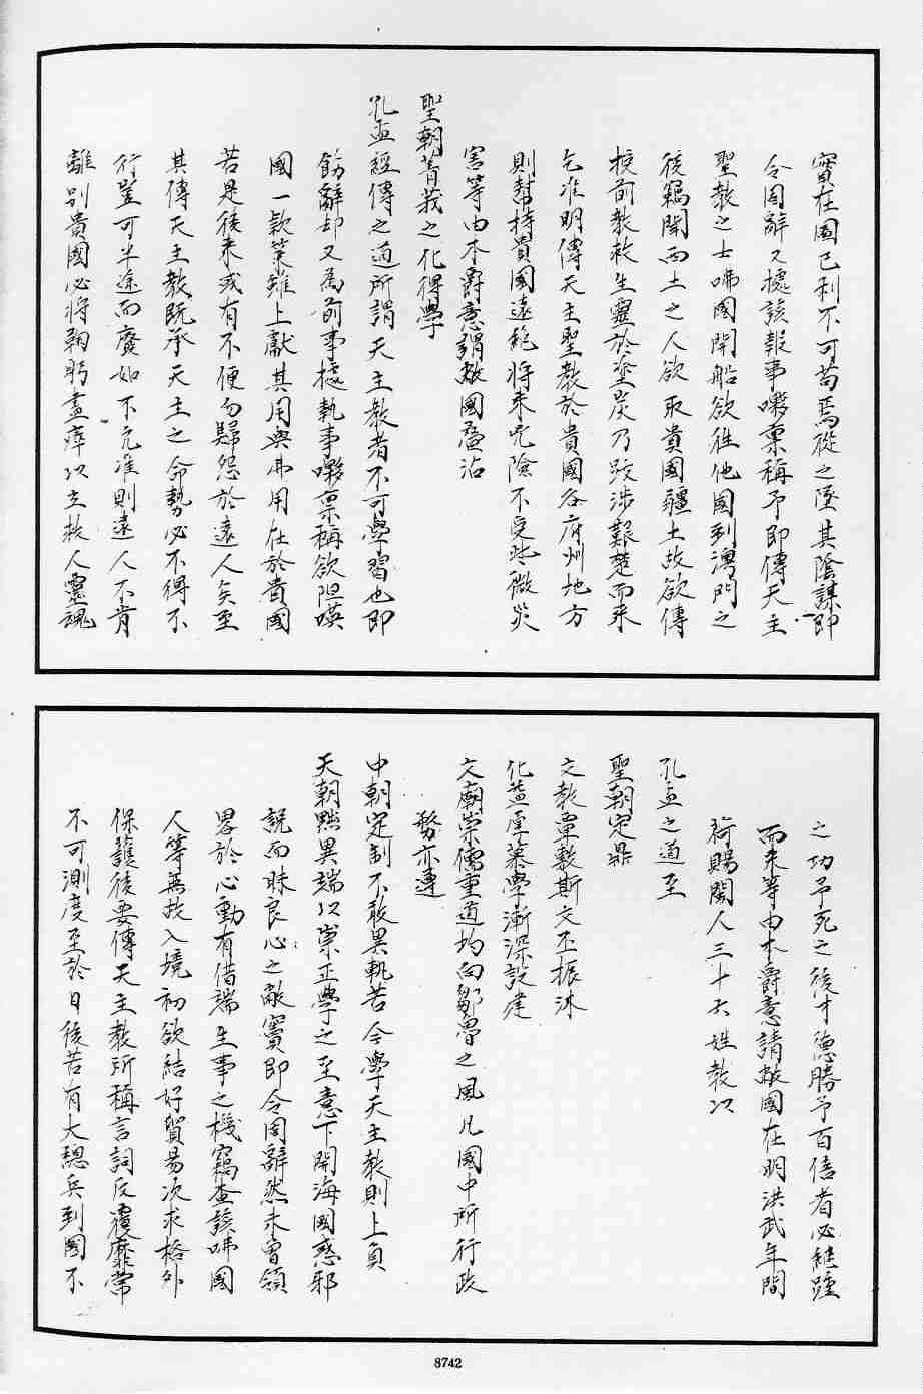 實在圖已利不可苟焉從之墜其陰謀即
令固辭又據該報事嘶稟稱予即傳天主
聖教之士啼國開船欲往他國到澚門之
後竊聞西土之人欲取貴國疆土故欲傳
授前教救生靈於塗炭乃跋涉艱楚而來
乞准明傳天主聖教於貴國各府州地方
則幫持貴國遠絶將来兇險不受些微災
害等由本爵意謂敝國叠沾
聖朝菁莪之化得學
孔孟經傳之道所謂天主教者不可學習也即
飭辭却又為前事據執事嘶稟稱欲阻暎
國一款策雖上獻其用與弗用在於貴國
若是後来或有不便勿歸怨於遠人矣至
其傳天主教既承天主之命勢必不得不
行豈可半途而廢如不允准則遠人不肯
離别貴國必將鞠躬盡瘁以立救人靈魂
之功予死之後才德勝予百倍者必繼踵
而来等由本爵意請敝國在明洪武年間
荷賜閩人三十六姓教以
孔孟之道至
聖朝定鼎
文教覃敷斯文丕振沐
化益厚慕學漸深設建
文廟崇儒重道均向鄒魯之風凡國中所行政
務亦遵
中朝定制不敢異軌若令學天主教則上負
天朝黜異端以崇正學之至意下開海國惑邪
說而昧良心之敝竇即令固辭然未曾領
畧於心動有借端生事之機竊查該啼國
人等無故入境初欲結好貿易次求格外
保護後要傳天主教所稱言詞反覆靡常
不可測度至於日後若有大總兵到國不
8742